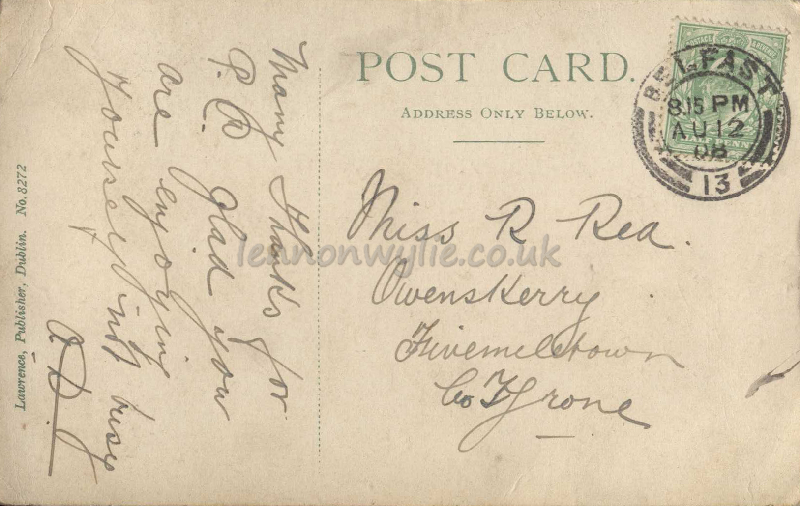 Many thanks for
P.C. glad you
are enjoying
yourself
A D J
Lawrence, Publisher, Dublin. No. 8272
POST CARD.
ADDRESS ONLY BELOW.
BELFAST
8.15 PM
AU 12
08
13
Miss R Rea.
Owenskerry
Fivemiletown
Co Tyrone
lennonwylie.co.uk